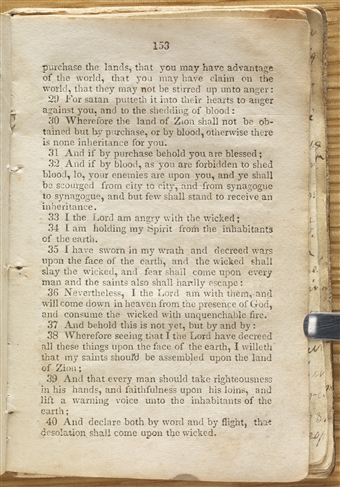 153
purchase the lands, that you may have advantage
of the world, that you may have claim on the
world, that they may not be stirred up unto anger:
29 For satan putteth it into their hearts to anger
against you, and to the shedding of blood:
30 Wherefore the land of Zion shall not be ob-
tained but by purchase, or by blood, otherwise there
is none inheritance for you.
31 And if by purchase behold you are blessed;
32 And if by blood, as you are forbidden to shed
blood, lo, your enemies are upon you, and ye shall
be scourged from city to city, and from synagogue
to synagogue, and but few shall stand to receive an
inheritance.
33 I the Lord am angry with the wicked;
34 I am holding my Spirit from the inhabitants
of the earth.
35 I have sworn in my wrath and decreed wars
upon the face of the earth, and the wicked shall
slay the wicked, and fear shall come upon every
man and the saints also shall hardly escape:
36 Nevertheless, I the Lord am with them, and
will come down in heaven from the presence of God,
and consume the wicked with unquenchable fire.
37 And behold this is not yet, but by and by:
38 Wherefore seeing that I the Lord have decreed
all these things upon the face of the earth, I willeth
that my saints should be assembled upon the land
of Zion;
39 And that every man should take righteousness
in his hands, and faithfulness upon his loins, and
lift a warning voice unto the inhabitants of the
earth;
40 And declare both by word and by flight, that
desolation shall come upon the wicked.